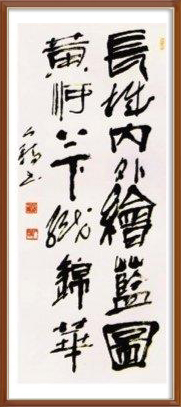 長城内外繪藍圖
黄河上下織錦華